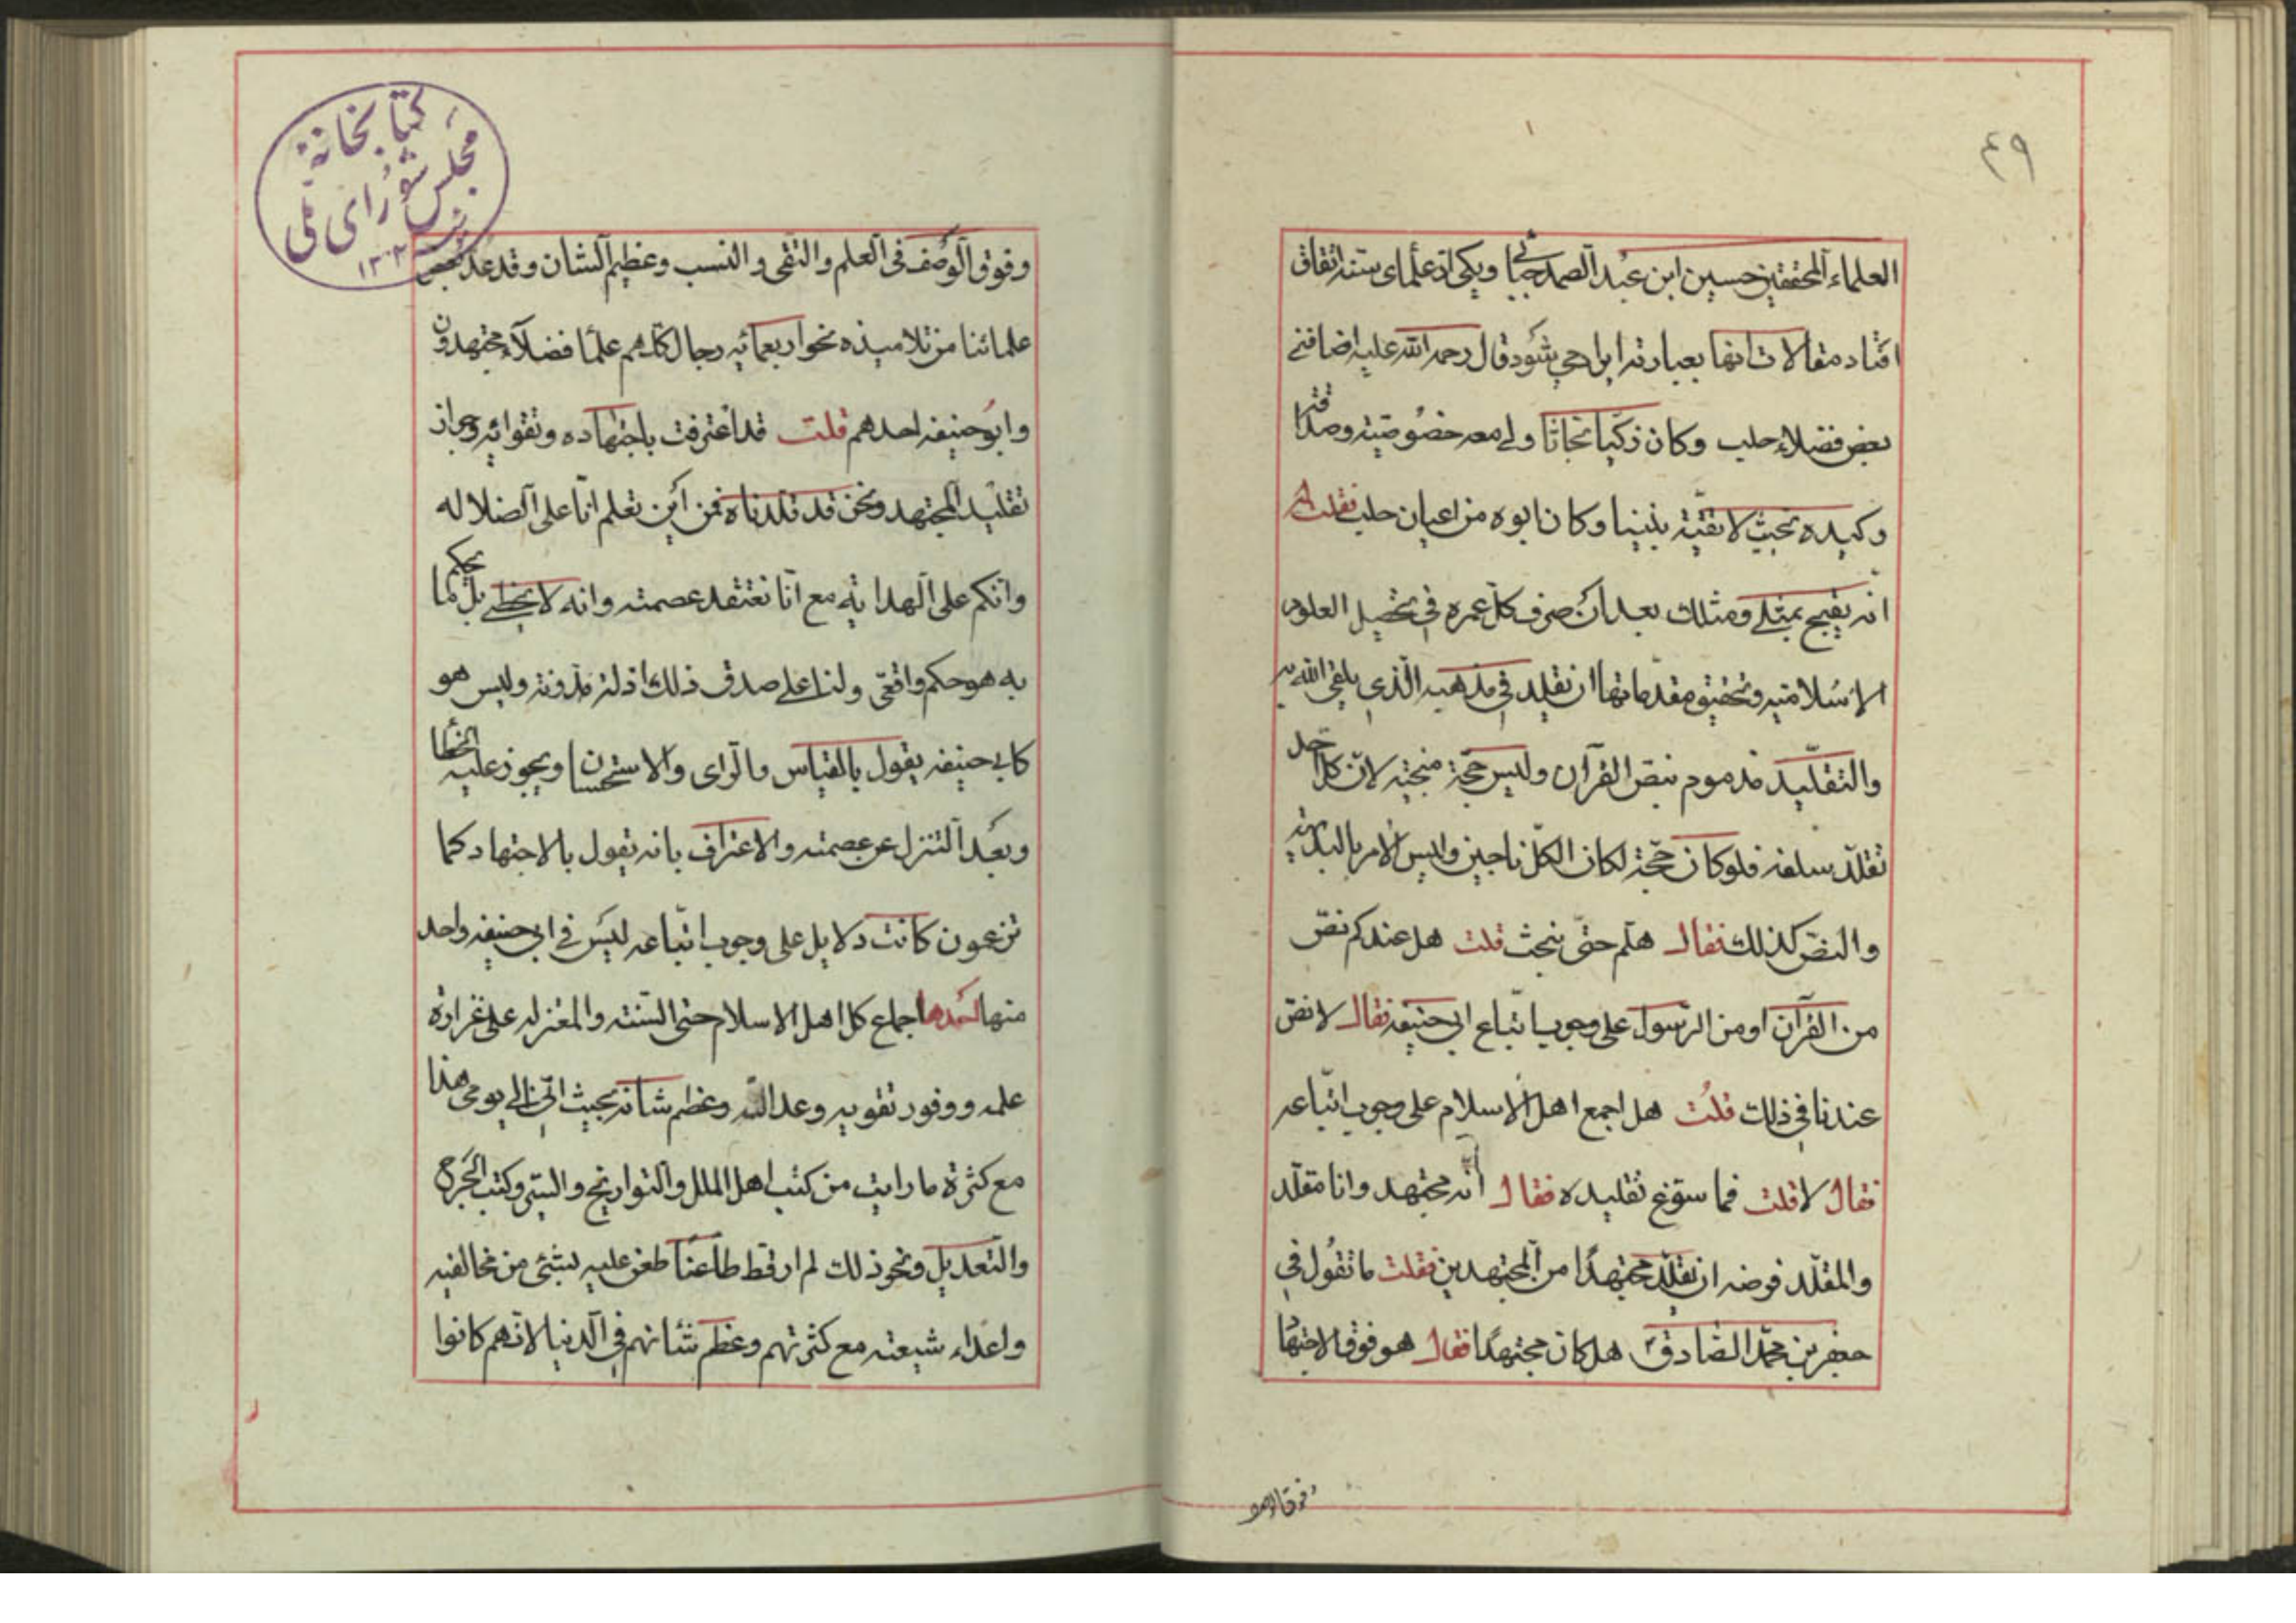 ٤٩
العلماء المحققين حسين ابن عبد الصمد جباعی و یکی از علمای سنته اتفاق
افتاد مقالات انها بعبارته ایراد می شود قال رحمه الله علیه اضافنی
بعض فضلاء حلب وكان ذكيا بحاثا ولي معه خصوصيته وصداقته
وكيده بحيث لا تقيّة بيننا وكان ابوه من اعيان حلب فقلت له
انه يقبح بمثلي ومثلك بعد ان صرف كل عمره في تحصيل العلوم
الاسلاميه وتحقيق مقدماتها ان نقلد في مذهبه الذي يلقى الله به
والتقليد مذموم بنص القرآن وليس حجة منجيته لان كل احد
تقلد سلفه فلو كان حجة لكان الكل ناجين وليس الامر بالبديهة
والنص كذلك فقال هلم حتى نبحث قلت هل عندكم نص
من القرآن او من الرسول على وجوب اتباع ابي حنيفه فقال لا نص
عندنا في ذلك قلت هل اجمع اهل الاسلام على وجوب اتباعه
فقال لا قلت فما سوغ تقليده فقال انه مجتهد وانا مقلد
والمقلد فرضه ان يقلد مجتهدًا من المجتهدين فقلت ما تقول في
جعفر بن محمد الصادق هل كان مجتهدًا فقال هو فوق الاجتهاد
وفوق الوصف
كتابخانهٔ
مجلس شورای ملی
وفوق الوصف في العلم والتقى والنسب وعظيم الشان وقد عد بعض
علمائنا من تلاميذه نحو اربعمائه رجال كلهم علما فضلاء مجتهدون
وابو حنيفه احدهم قلت قد اعترفت باجتهاده وتقوائه وجواز
تقليد المجتهد ونحن قد قلدناه فمن اين تعلم انا على الضلاله
وانكم على الهدايه مع انا نعتقد عصمته وانه لا يخطي بل كما يحكم
به هو حكم واقعي ولنا على صدق ذلك ادلة مدونة وليس هو
كابي حنيفه يقول بالقياس والراى والاستحسان ويجوز عليه الخطا
وبعد التنزل عن عصمته والاعتراف بانه يقول بالاجتهاد كما
تزعمون كانت دلايل على وجوب اتباعه ليس في ابي حنيفه واحد
منها احدها اجماع كل اهل الاسلام حتى السنته والمعتزله على غزارة
علمه ووفور تقويه وعدالته وعظم شانه بحيث اني الى يومي هذا
مع كثرة ما رايت من كتب اهل الملل والتواريخ والسير وكتب الجرح
والتعديل ونحو ذلك لم ار قط طاعنًا طعن عليه بشئ من مخالفيه
واعداء شيعته مع كثرتهم وعظم شانهم في الدنيا لانهم كانوا